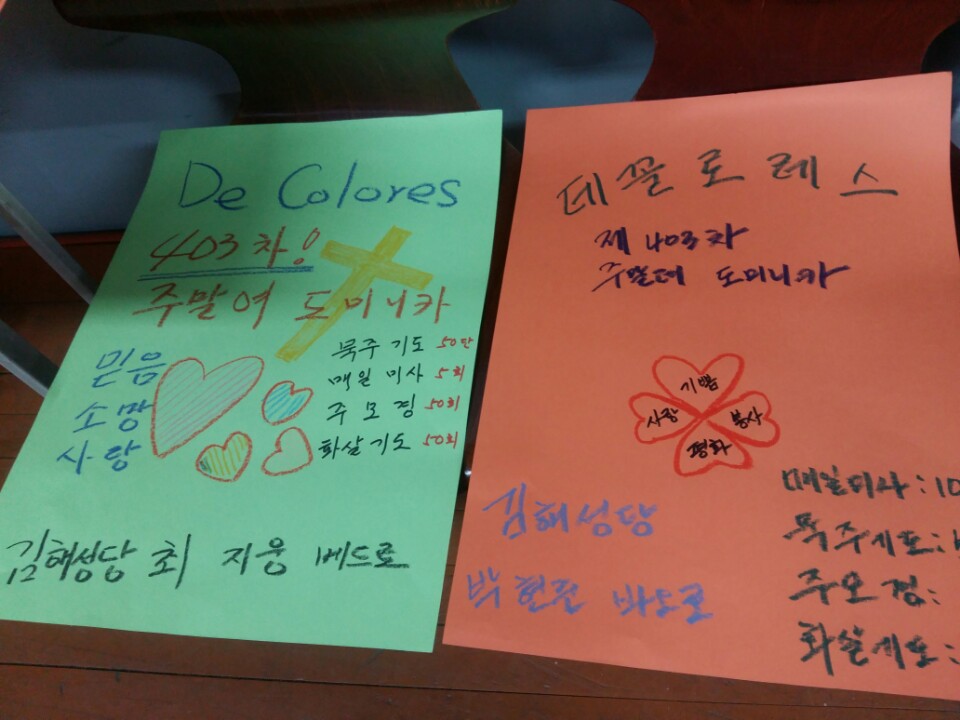 De Colores
403차!
주말여 도미니카
믿음
소망
사랑
묵주 기도 50만
매일 미사 5회
주모경 50회
화살기도 50회
김해성당 최 지웅 베드로
데 꼴 로 레 스
제 403차
주말여 도미니카
기쁨
사랑
봉사
평화
김해성당
박현준 바오로
매일미사: 10
묵주기도:
주모경:
화살기도: